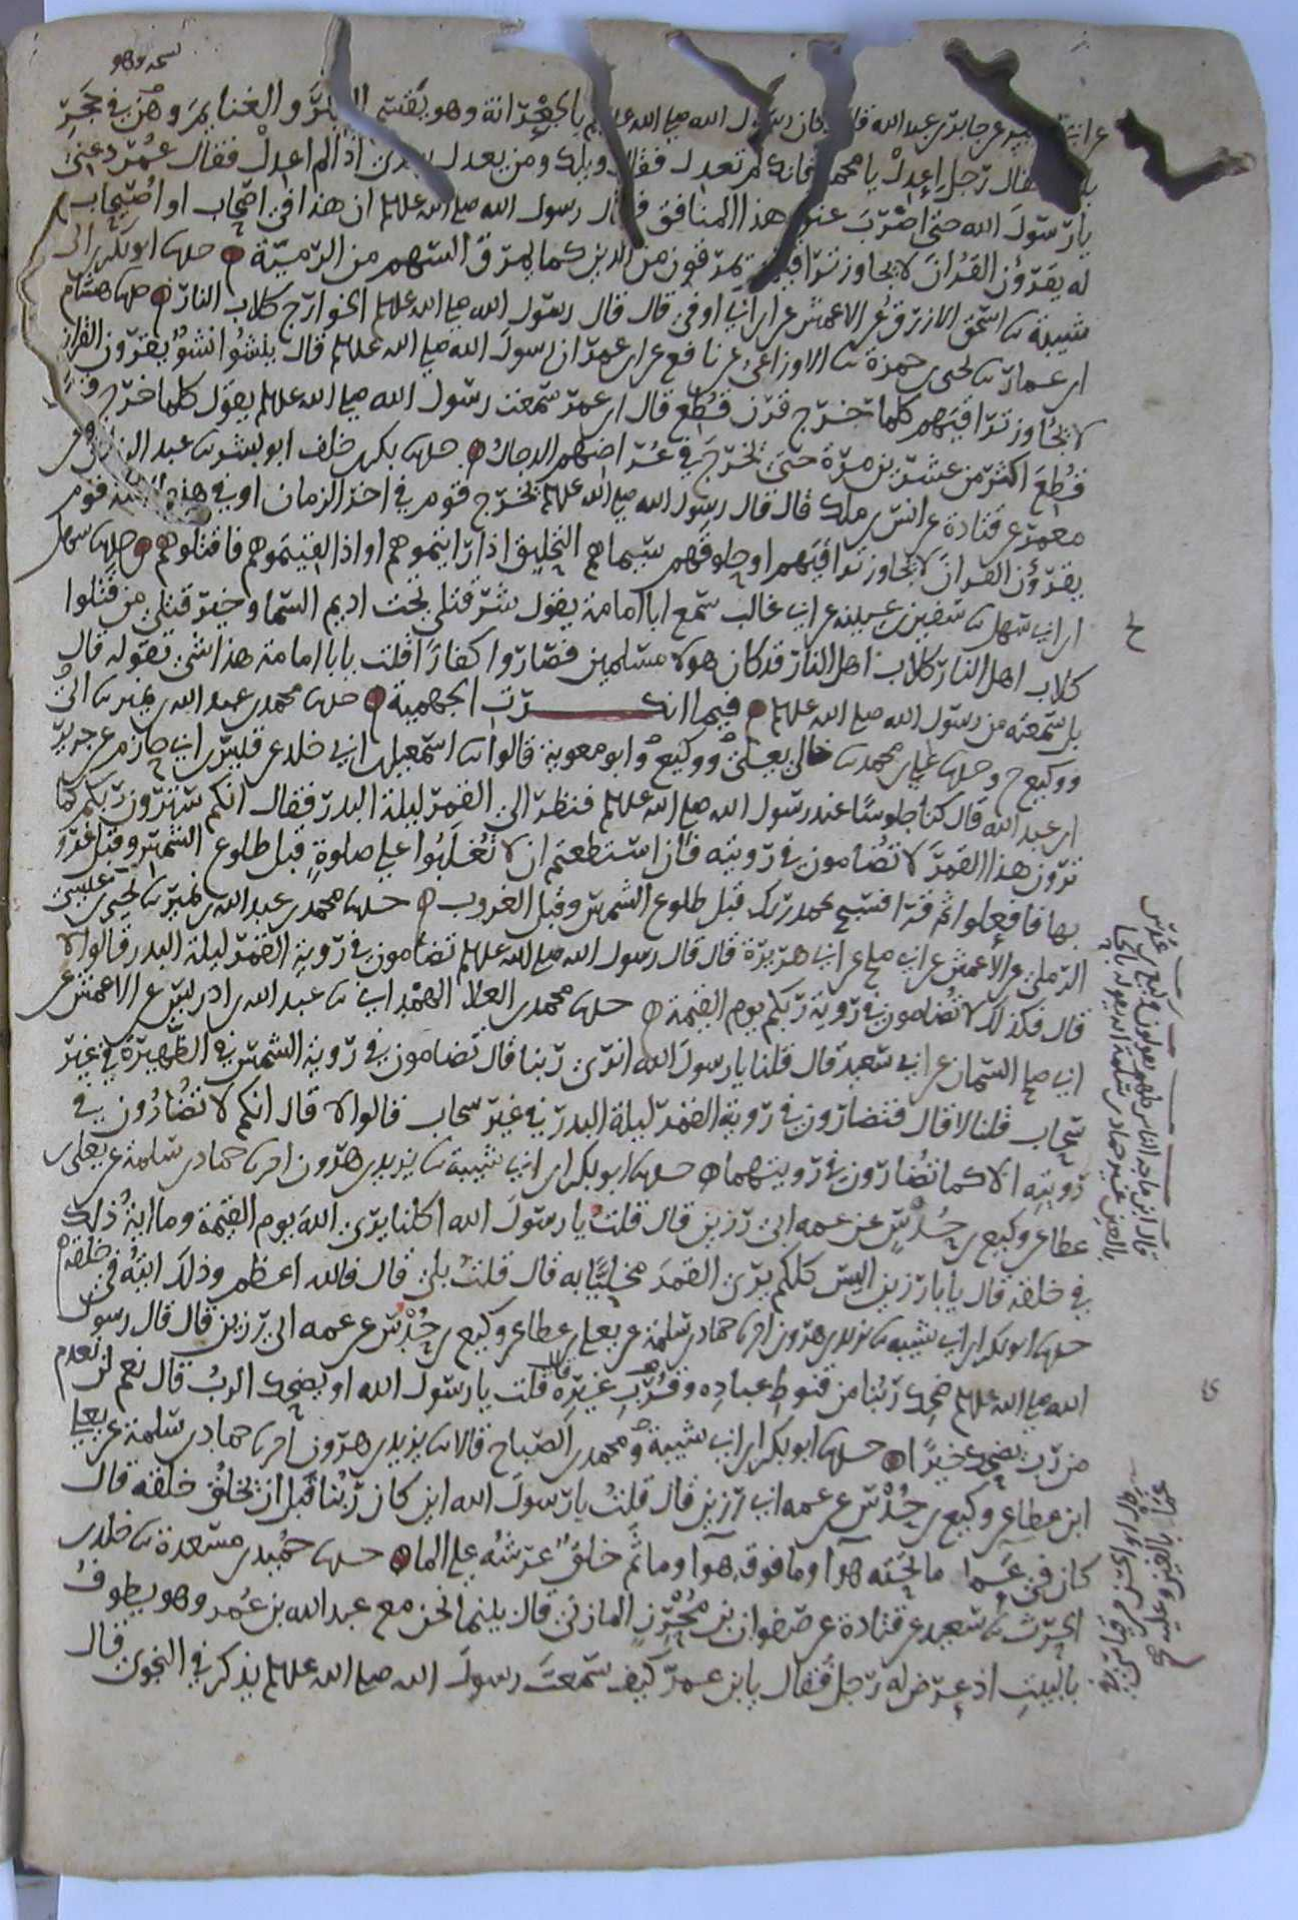 نسخه وهو
عن ابي الزبير عن جابر بن عبد الله قال كان رسول الله صلى الله علىه وسلم بالجعرانة وهو يقسم التبر والغنايم وهو في حجر
بلال فقال رجل اعدل يا محمد فانك لم تعدل فقال ويلك ومن يعدل بعدي اذا لم اعدل فقال عمر دعني
يا رسول الله حتى اضرب عنق هذا المنافق فقال رسول الله صلى الله علىه وسلم ان هذا في اصحاب او اصيحاب
له يقرؤن القران لا يجاوز تراقيهم يمرقون من الدين كما يمرق السهم من الرمية حدثنا ابو بكر بن ابي
شيبة ثنا اسحق الازرق عن الاعمش عن ابن ابي اوفى قال قال رسول الله صلى الله علىه وسلم الخوارج كلاب النار حدثنا هشام
ابن عمار ثنا يحيى بن حمزة ثنا الاوزاعي عن نافع عن ابن عمر ان رسول الله صلى الله علىه وسلم قال ينشوا نشو يقرؤن القران
لا يجاوز تراقيهم كلما خرج قرن قطع قال ابن عمر سمعت رسول الله صلى الله علىه وسلم يقول كلما خرج قرن
قطع اكثر من عشرين مرة حتى يخرج في عراضهم الدجال حدثنا بكر بن خلف ابو بشر ثنا عبد الرزاق عن
معمر عن قتادة عن انس بن ملك قال قال رسول الله صلى الله علىه وسلم يخرج قوم في اخر الزمان او في هذه الامة قوم
يقرؤن القران لا يجاوز تراقيهم او حلوقهم سيماهم التحليق اذا رايتموهم او اذا لقيتموهم فاقتلوهم حدثنا سهل
ابن ابي سهل ثنا سفين بن عيينه عن ابي غالب سمع ابا امامة يقول شر قتلى تحت اديم السما وخير قتلى من قتلوا
كلاب اهل النار كلاب اهل النار قد كان هولا مسلمين فصاروا كفارا قلت يابا امامة هذا شي تقوله قال
بل سمعته من رسول الله صلى الله علىه وسلم فيما انكرت الجهمية حدثنا محمد بن عبد الله بن نمير ثنا ابي
ووكيع ح وحدثنا علي بن محمد ثنا خالي يعلى ووكيع وابو معوية قالوا ثنا اسمعيل بن ابي خلد عن قيس بن ابي حازم عن جرير
ابن عبد الله قال كنا جلوسا عند رسول الله صلى الله علىه وسلم فنظر الى القمر ليلة البدر فقال انكم سترون ربكم كما
ترون هذا القمر لا تضامون في رويته فان استطعتم ان لا تغلبوا على صلوة قبل طلوع الشمس وقبل غرو
بها فافعلوا ثم قرا فسبح بحمد ربك قبل طلوع الشمس وقبل الغروب حدثنا محمد بن عبد الله بن نمير ثنا يحيى بن عيسى
الرملي عن الاعمش عن ابي صلح عن ابي هريرة قال قال رسول الله صلى الله علىه وسلم تضامون في روية القمر ليلة البدر قالوا لا
قال فكذلك لا تضامون في روية ربكم يوم القيمة حدثنا محمد بن العلا الهمداني ثنا عبد الله بن ادريس عن الاعمش عن
ابي صلح السمان عن ابي سعيد قال قلنا يا رسول الله انرى ربنا قال تضامون في روية الشمس في الظهيرة في غير
سحاب قلنا لا قال فتضارون في روية القمر ليلة البدر في غير سحاب قالوا لا قال انكم لا تضارون في
رويته الا كما تضارون في رويتهما حدثنا ابو بكر بن ابي شيبة ثنا يزيد بن هرون اخبرنا حماد بن سلمة عن يعلى بن
عطا عن وكيع بن حدس عن عمه ابي رزين قال قلت يا رسول الله اكلنا يرى الله يوم القيمة وما اية ذلك
في خلقه قال يابا رزين اليس كلكم يرى القمر مخليا به قال قلت بلى قال فالله اعظم وذلك ايته في خلقه
حدثنا ابو بكر بن ابي شيبة ثنا يزيد بن هرون اخبرنا حماد بن سلمة عن يعلى بن عطا عن وكيع بن حدس عن عمه ابي رزين قال قال رسول
الله صلى الله علىه وسلم ضحك ربنا من قنوط عباده وقرب غيره قال قلت يا رسول الله او يضحك الرب قال نعم لن نعدم
من رب يضحك خيرا حدثنا ابو بكر بن ابي شيبة ومحمد بن الصباح قالا ثنا يزيد بن هرون اخبرنا حماد بن سلمة عن يعلى
ابن عطا عن وكيع بن حدس عن عمه ابي رزين قال قلت يا رسول الله اين كان ربنا قبل ان يخلق خلقه قال
كان في عما ما تحته هوا وما فوقه هوا وما ثم خلق عرشه على الما حدثنا حميد بن مسعدة ثنا خلد بن
الحرث ثنا سعيد عن قتادة عن صفوان بن محرز المازني قال بينما نحن مع عبد الله بن عمر وهو يطوف
بالبيت اذ عرض له رجل فقال يابن عمر كيف سمعت رسول الله صلى الله علىه وسلم يذكر في النجوى قال